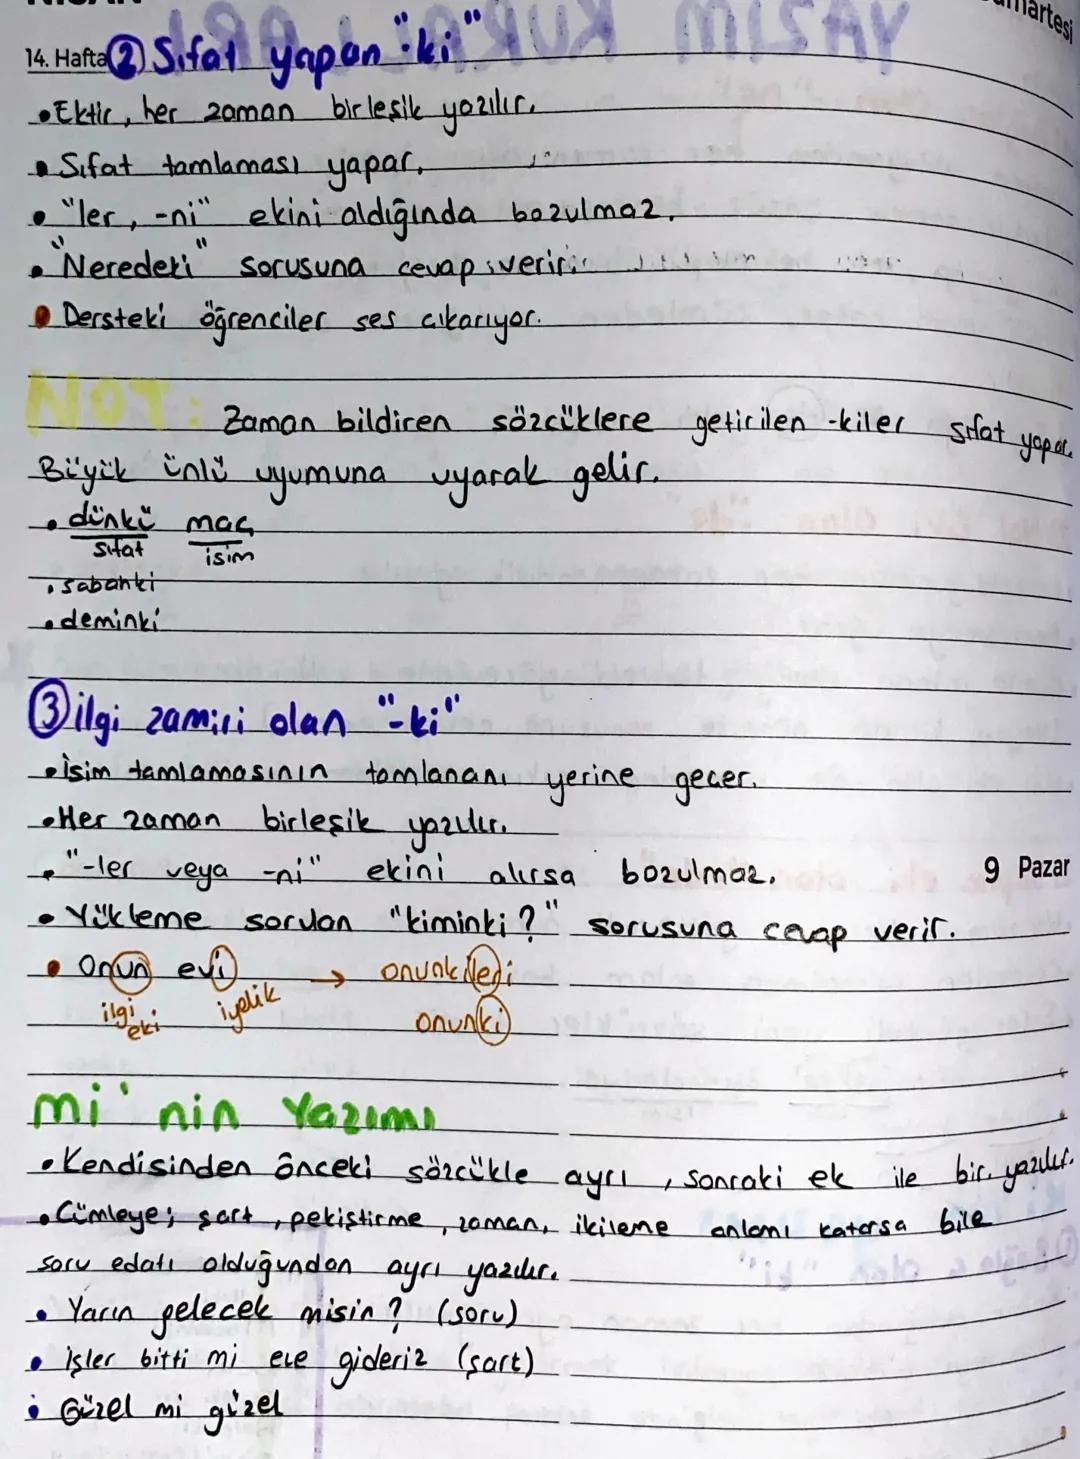 14. Hafta ② Sıfat yapan "-ki"
• Ektir, her zaman birleşik yazılır.
• Sıfat tamlaması yapar.
• "ler, -ni" ekini aldığında bozulmaz.
• "Neredeki" sorusuna cevap verir.
• Dersteki öğrenciler ses çıkarıyor.
NOT : Zaman bildiren sözcüklere getirilen -kiler sıfat yapar.
Büyük ünlü uyumuna uyarak gelir.
• dünkü maç
sıfat isim
• sabahki
• deminki
③ ilgi zamiri olan "-ki"
• isim tamlamasının tamlananı yerine geçer.
• Her zaman birleşik yazılır.
• "-ler veya -ni" ekini alırsa bozulmaz.
9 Pazar
• Yükleme sorulan "kiminki?" sorusuna cevap verir.
• Onun evi → onunkileri
ilgi eki iyelik onunki
mi'nin Yazımı
• Kendisinden önceki sözcükle ayrı, sonraki ek ile bir. yazılır.
• Cümleye; şart, pekiştirme, zaman, ikileme anlamı katarsa bile
soru edatı olduğundan ayrı yazılır.
• Yarın gelecek misin? (soru)
• işler bitti mi eve gideriz (şart)
• Güzel mi güzel